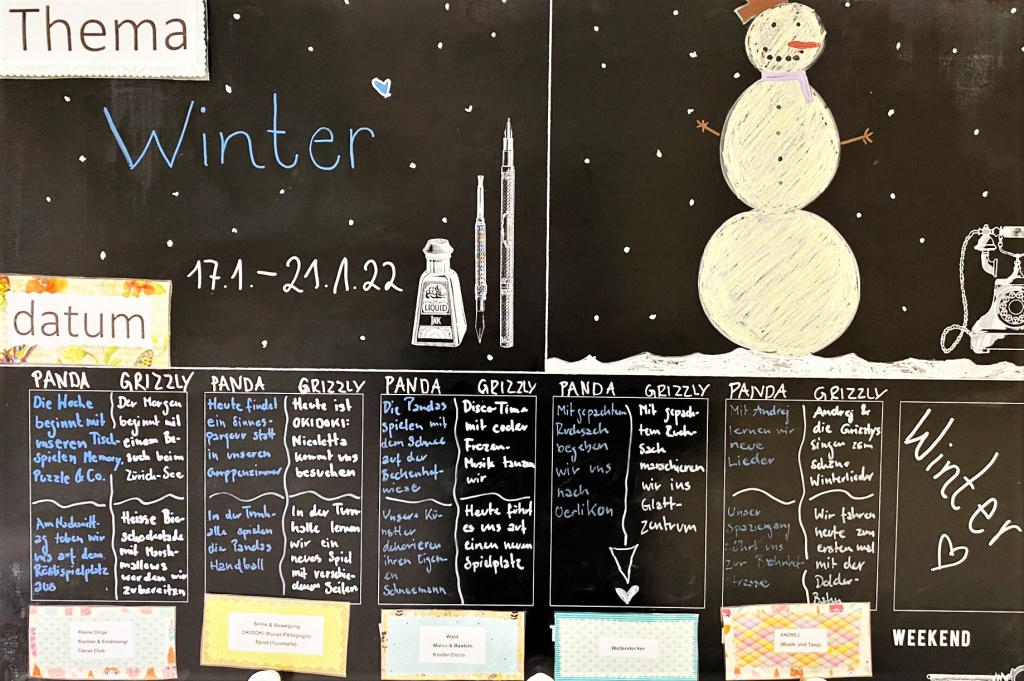 Thema
Winter
17.1.-21.1.22
datum
LIQUID
INK
PANDA
Die Woche
beginnt mit
unseren Tisch-
spielen Memory,
Puzzle & Co.
Am Nachmitt-
ag toben wir
uns auf dem
Röslispielplatz
aus
GRIZZLY
Der Morgen
beginnt mit
einem Be-
such beim
Zürich-See
Heisse Bie-
schockolade
mit Marsh-
mallows
werden wir
zubereiten
PANDA
Heute findet
ein Sinnes-
parcour statt
in unseren
Gruppenzimmer
In der Turnh-
alle spielen
die Pandas
Handball
GRIZZLY
Heute ist
OKIDOKI:
Nicoletta
kommt uns
besuchen
In der Turn-
halle lernen
wir ein
neues Spiel
mit verschie-
denen Seilen
PANDA
Die Pandas
spielen mit
dem Schnee
auf der
Beckenhof-
wiese
Unsere Kü-
nstler
dekorieren
ihren Eigen-
en
Schneemann
GRIZZLY
Disco-Time
mit cooler
Frozen-
Musik tanzen
wir
Heute führt
es uns auf
einen neuen
Spielplatz
PANDA
Mit gepackten
Rucksach
begeben
wir uns
nach
Oerlikon
GRIZZLY
Mit gepack-
ten Ruck-
sack
marschieren
wir ins
Glatt-
zentrum
PANDA
Mit Andrej
lernen wir
neue
Lieder
Unser
Spaziergang
führt uns
zur Bahnhof-
strasse
GRIZZLY
Andrej &
die Grizzlys
singen zsm
schöne
Winterlieder
Wir fahren
heute zum
ersten mal
mit der
Dolder-
Bahn
Winter
WEEKEND
Kleine Dinge
Kochen & Ernährung/
Clever Club
Sinne & Bewegung
OKIDOKI (Kunst-Pädagogin)
Sport (Turnhalle)
Wald
Malen & Basteln
Kinder-Disco
Weltendecker
ANDREJ
(Musik- und Tanz)